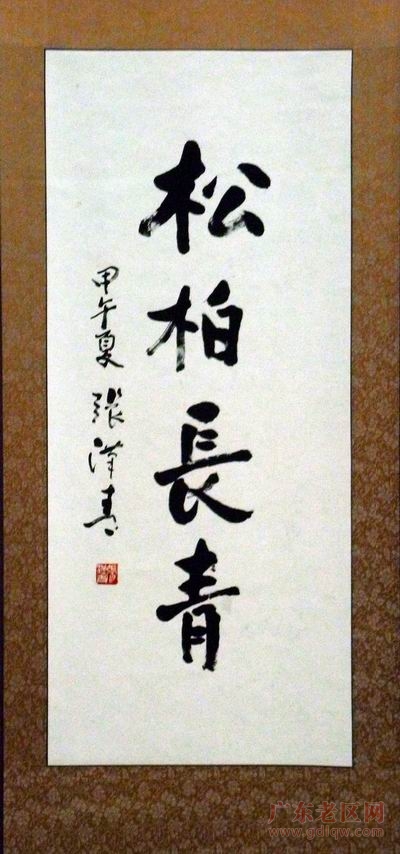 松柏長青
甲午夏 張漢青
广东老区网
www.gdlqw.com